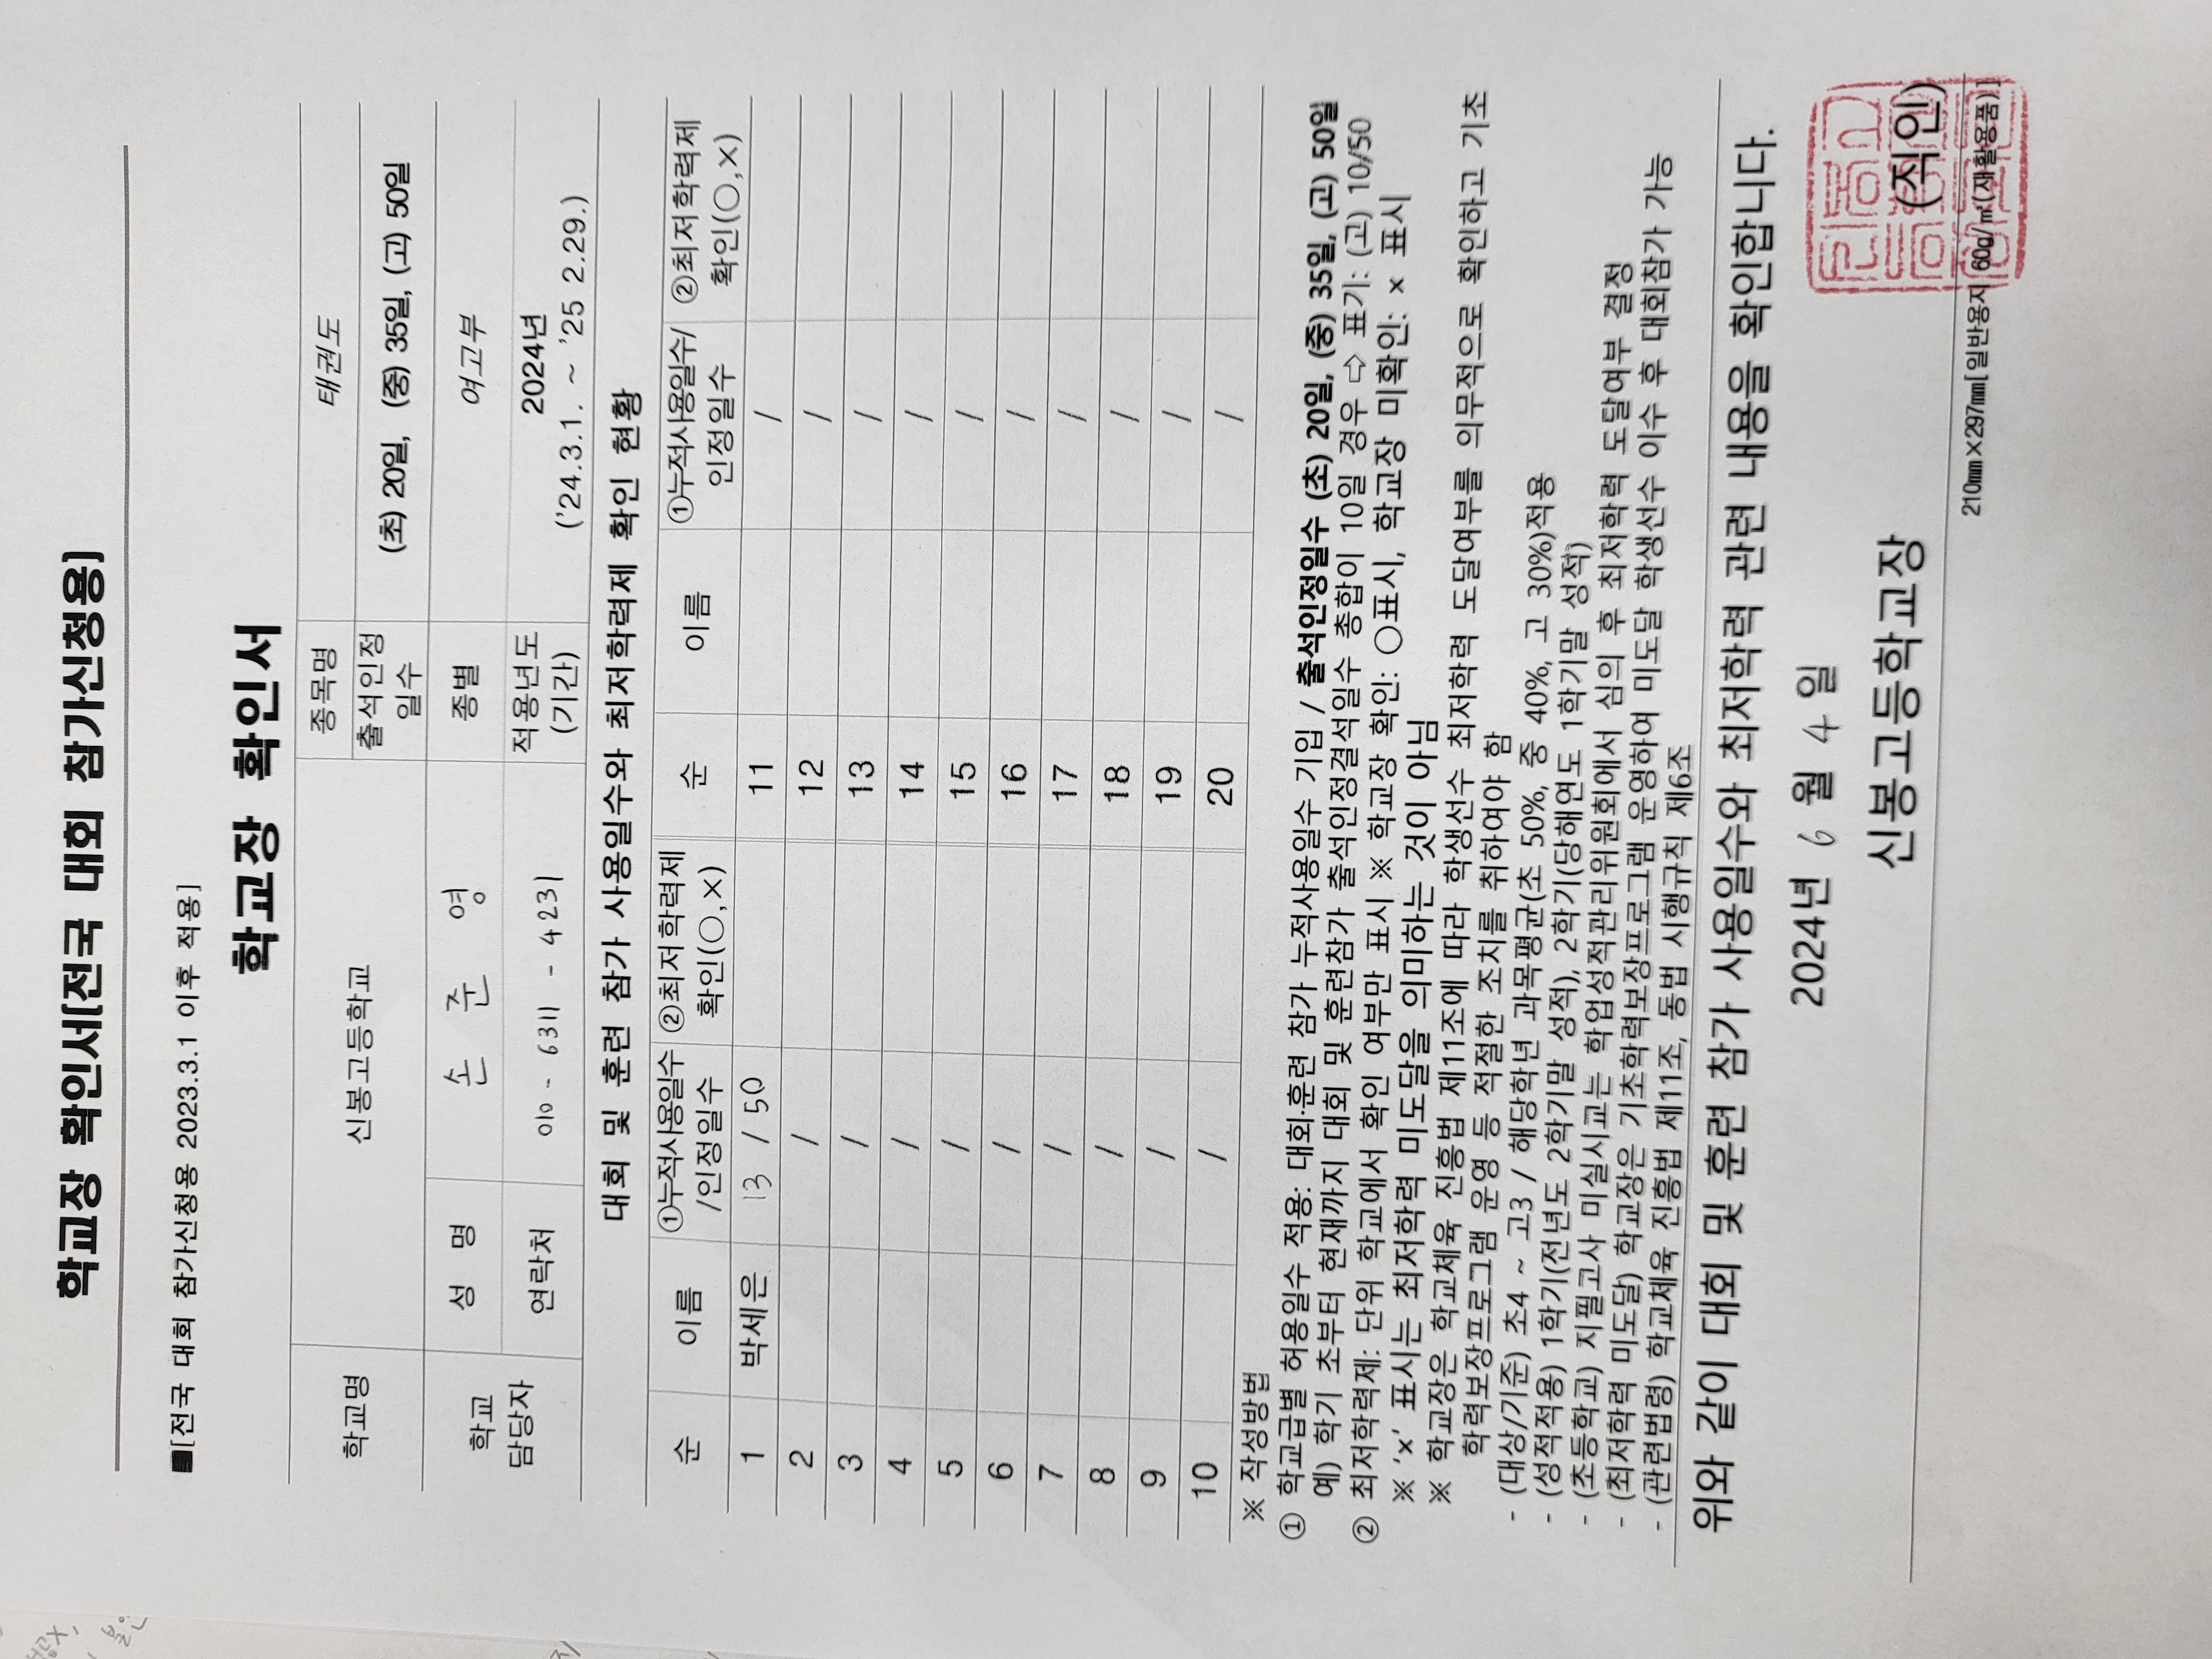 학교장 확인서[전국 대회 참가신청용]
■[전국 대회 참가신청용 2023.3.1 이후 적용]
학교장 확인서
학교명 신봉고등학교 종목명 태권도
출석인정 일수 (초) 20일, (중) 35일, (고) 50일
학교 담당자 성 명 손 준 영 종별 여고부
연락처 010 - 6311 - 4231 적용년도 (기간) 2024년 ('24.3.1. ~ '25 2.29.)
대회 및 훈련 참가 사용일수와 최저학력제 확인 현황
순 이름 ①누적사용일수 /인정일수 ②최저학력제 확인(○,×) 순 이름 ①누적사용일수/ 인정일수 ②최저학력제 확인(○,×)
1 박세은 13 / 50 11 /
2 / 12 /
3 / 13 /
4 / 14 /
5 / 15 /
6 / 16 /
7 / 17 /
8 / 18 /
9 / 19 /
10 / 20 /
※ 작성방법
① 학교급별 허용일수 적용: 대회·훈련 참가 누적사용일수 기입 / 출석인정일수 (초) 20일, (중) 35일, (고) 50일
예) 학기 초부터 현재까지 대회 및 훈련참가 출석인정결석일수 총합이 10일 경우 ⇨ 표기: (고) 10/50
② 최저학력제: 단위 학교에서 확인 여부만 표시 ※ 학교장 확인: ○표시, 학교장 미확인: × 표시
※ 'x' 표시는 최저학력 미도달을 의미하는 것이 아님
※ 학교장은 학교체육 진흥법 제11조에 따라 학생선수 최저학력 도달여부를 의무적으로 확인하고 기초
학력보장프로그램 운영 등 적절한 조치를 취하여야 함
- (대상/기준) 초4 ~ 고3 / 해당학년 과목평균(초 50%, 중 40%, 고 30%)적용
- (성적적용) 1학기(전년도 2학기말 성적), 2학기(당해연도 1학기말 성적)
- (초등학교) 지필고사 미실시교는 학업성적관리위원회에서 심의 후 최저학력 도달여부 결정
- (최저학력 미도달) 학교장은 기초학력보장프로그램 운영하여 미도달 학생선수 이수 후 대회참가 가능
- (관련법령) 학교체육 진흥법 제11조, 동법 시행규칙 제6조
위와 같이 대회 및 훈련 참가 사용일수와 최저학력 관련 내용을 확인합니다.
2024년 6 월 4 일
신봉고등학교장 (직인)
210㎜×297㎜[일반용지 60g/㎡(재활용품)]